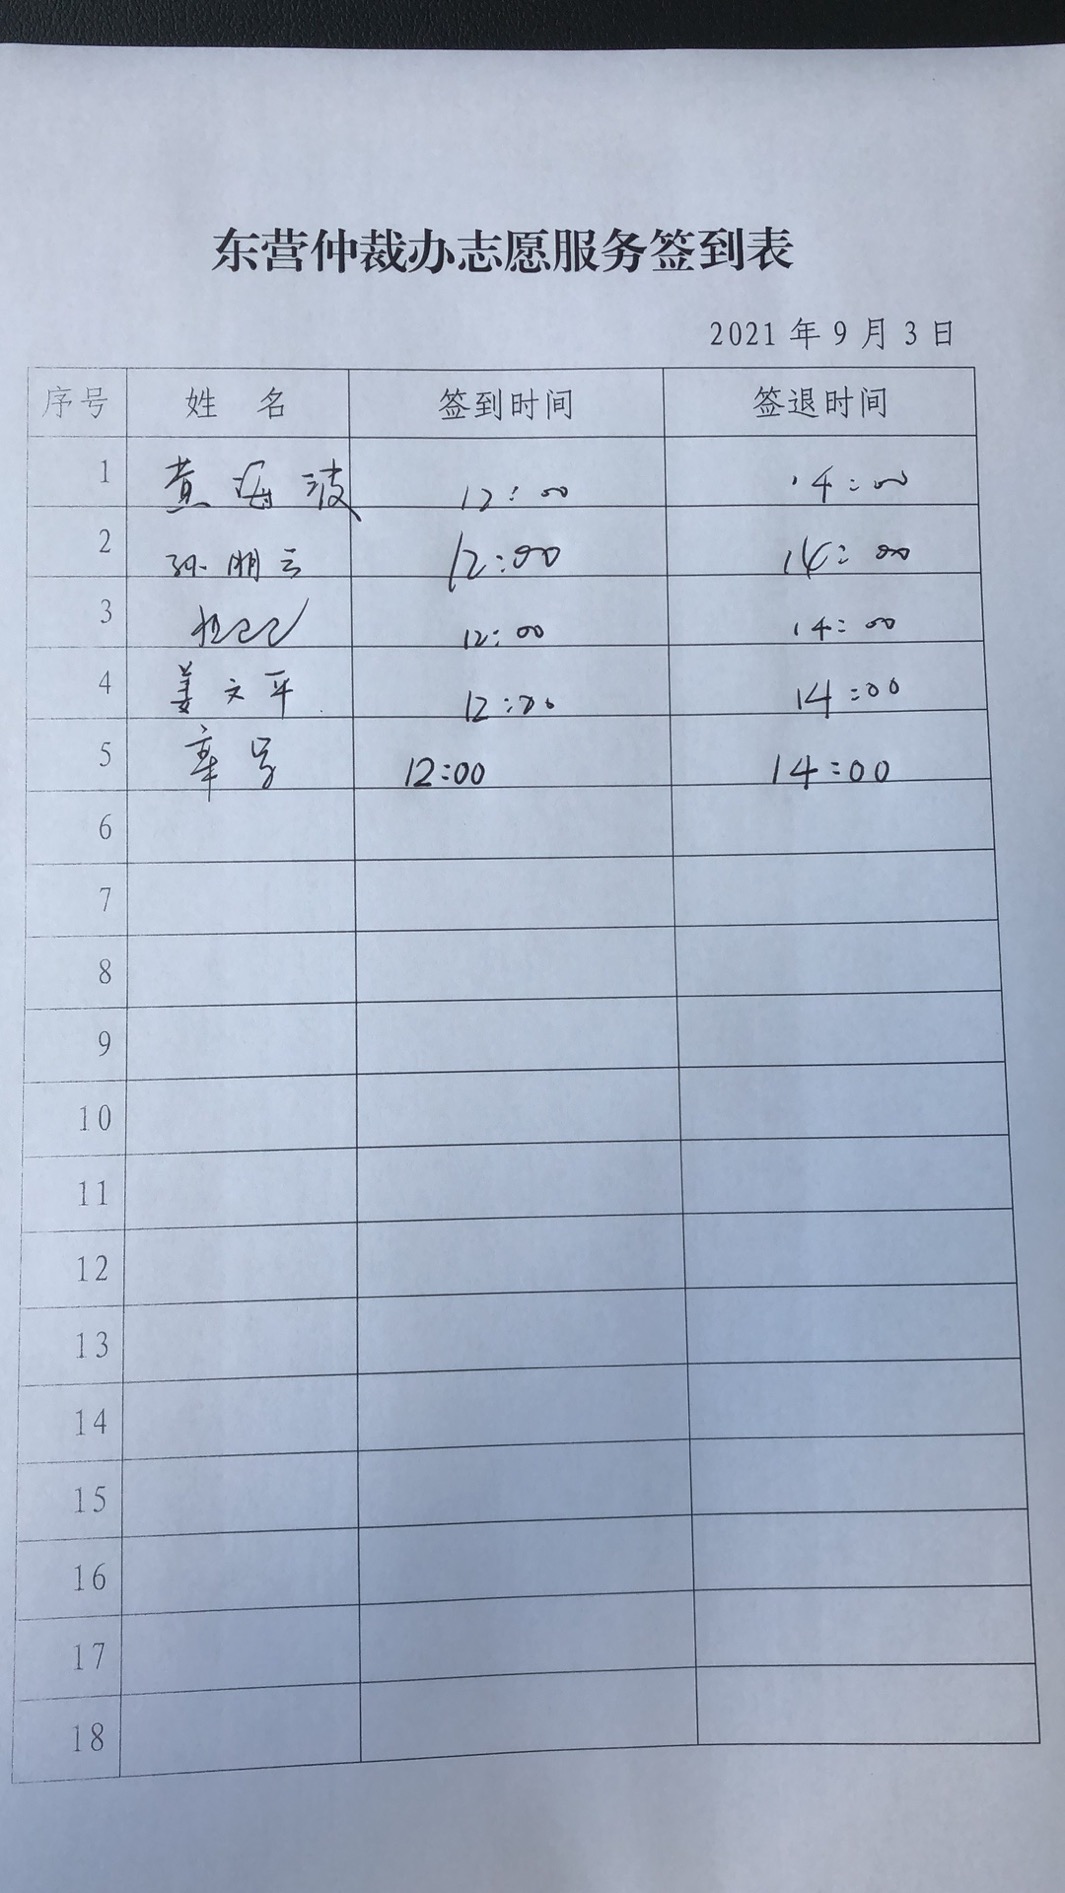 东营仲裁办志愿服务签到表
2021年9月3日
序号 姓 名 签到时间 签退时间
1 黄海波 12:00 14:00
2 孙明云 12:00 14:00
3 12:00 14:00
4 姜文平 12:00 14:00
5 12:00 14:00
6
7
8
9
10
11
12
13
14
15
16
17
18